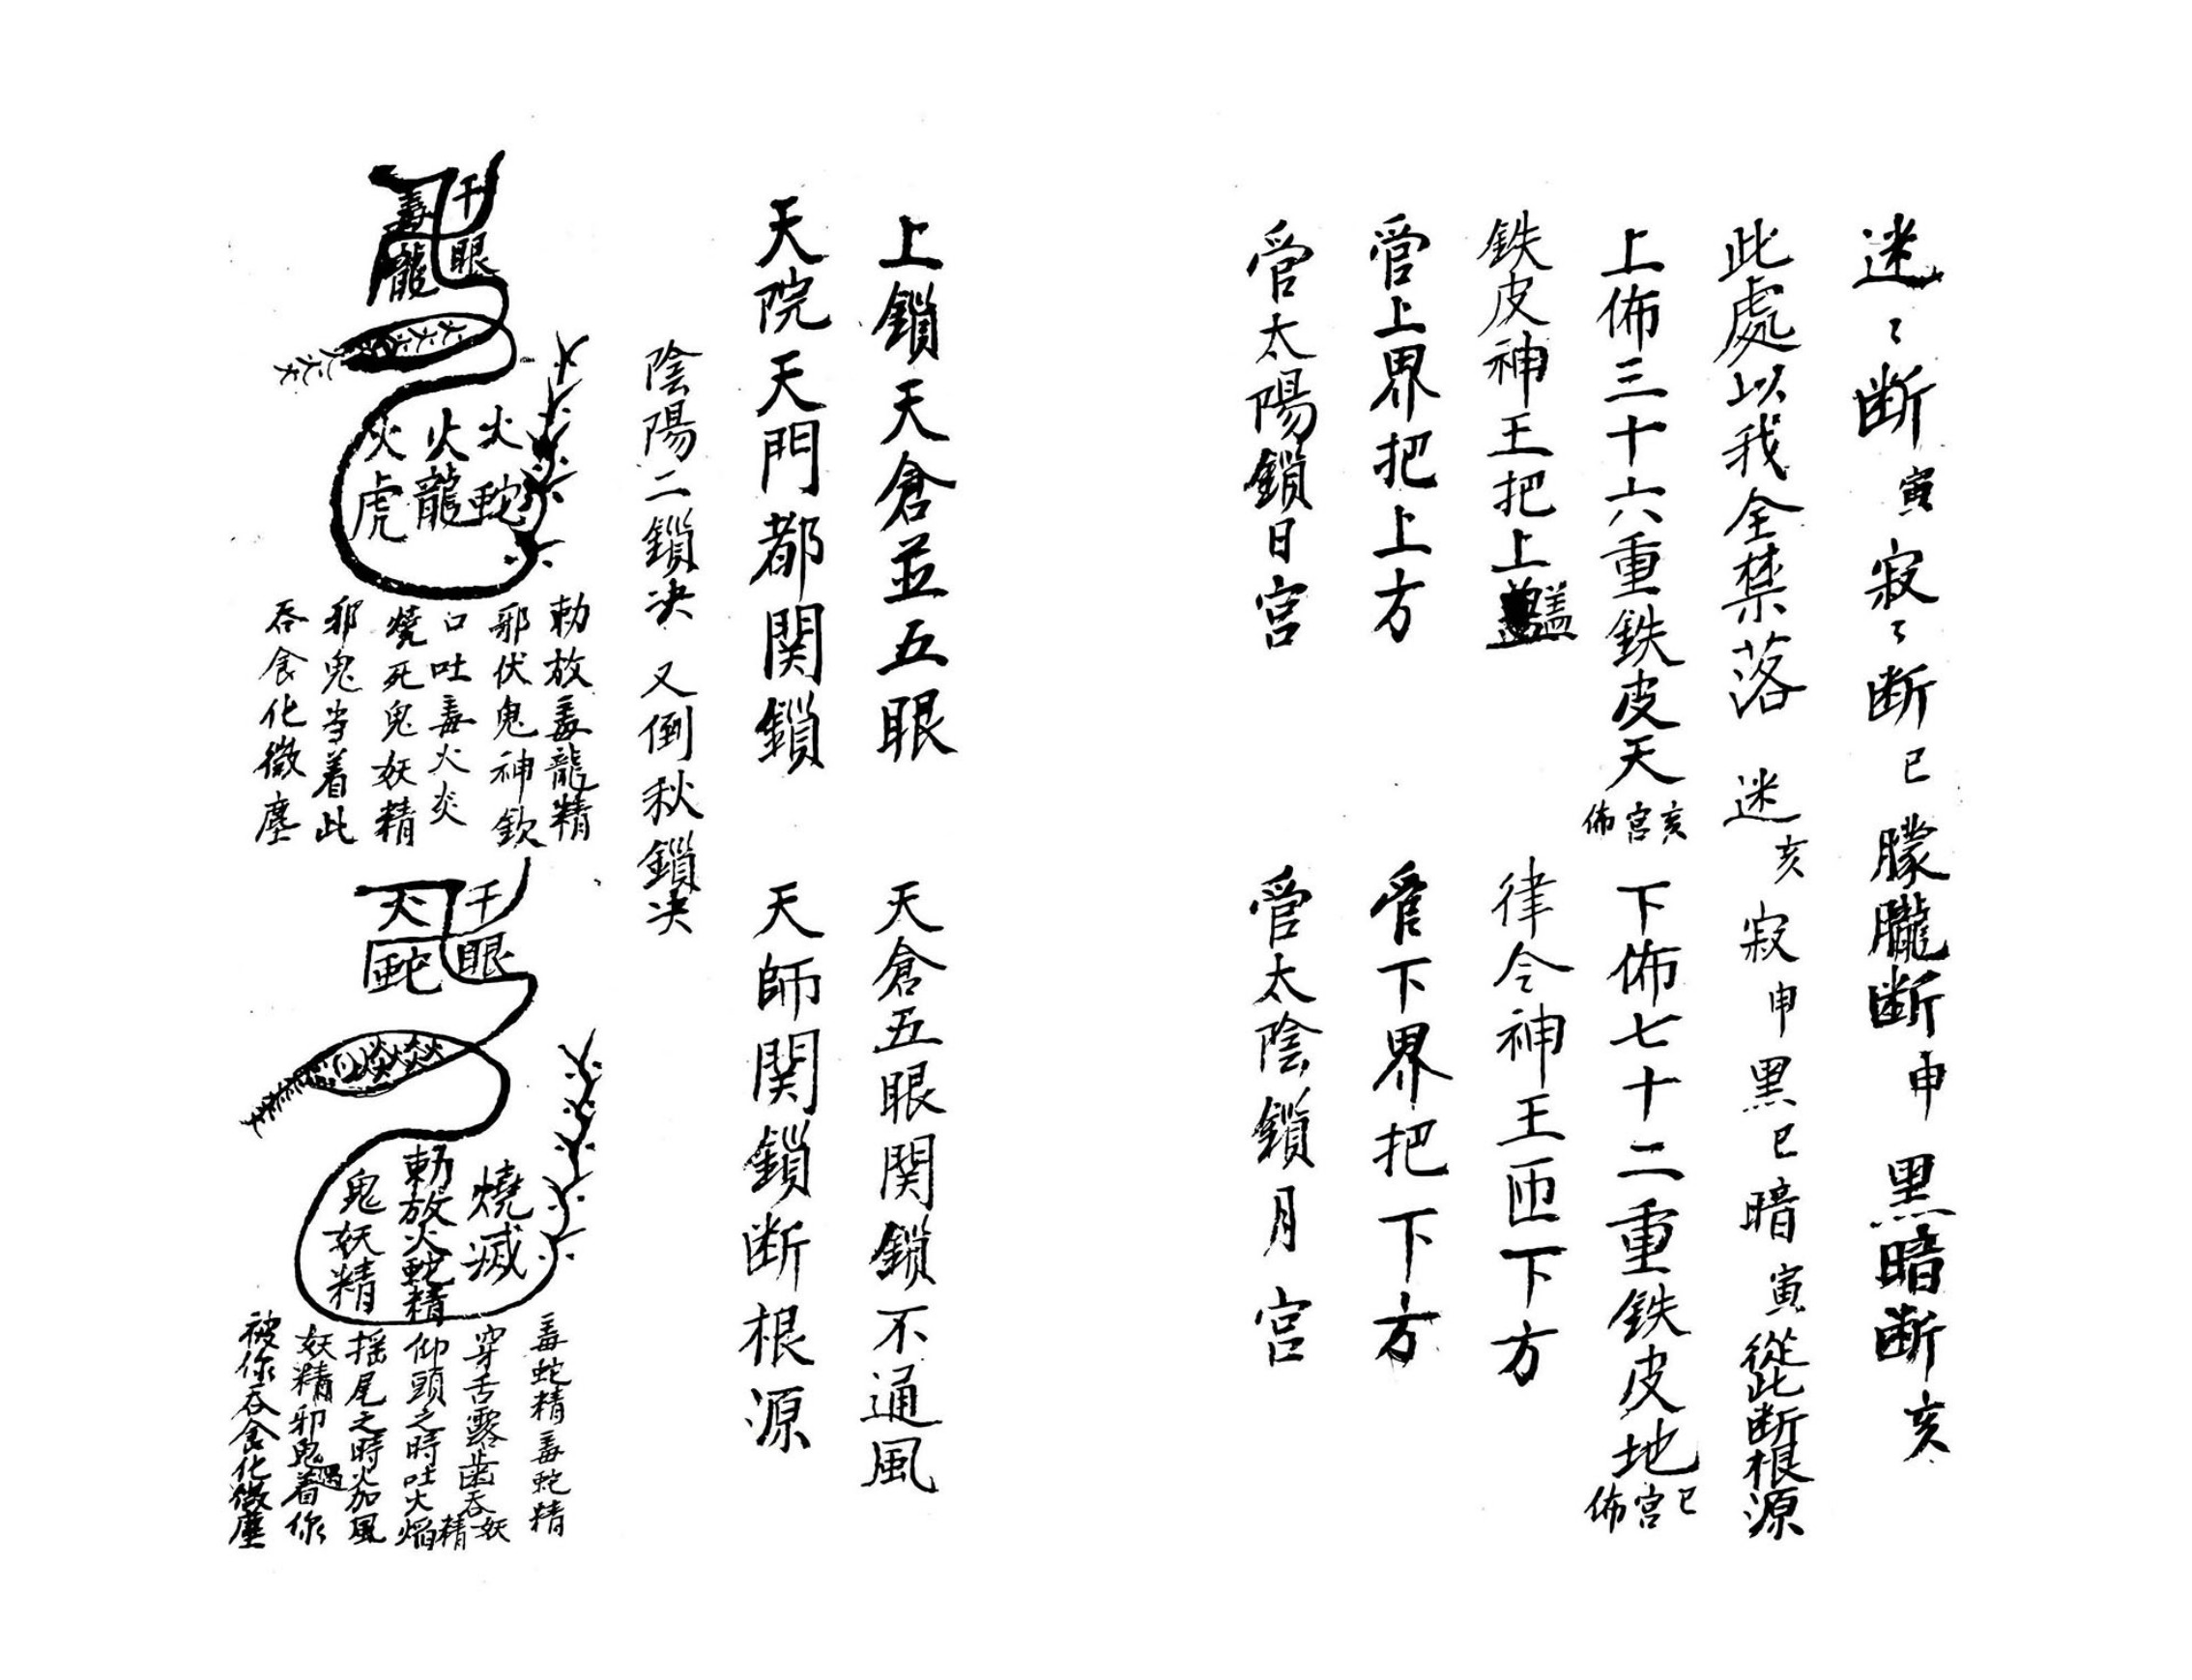 迷〻断寅寂〻断巳朦朧断申黒暗断亥
此處以我全禁落 迷亥寂申黒巳暗寅從此断根源
上佈三十六重鉄皮天亥宫佈 下佈七十二重鉄皮地巳宫佈
鉄皮神王把上 律令神王匝下方
管上界把上方 管下界把下方
管太陽鎖日宫 管太陰鎖月宫
上鎖天倉並五眼 天倉五眼関鎖不通風
天院天門都関鎖 天師関鎖断根源
陰陽二鎖决 又倒秋鎖决
千眼
毒龍
火蛇
火龍
火虎
勅放毒龍精
邪伏鬼神欽
口吐毒火炎
燒死鬼妖精
邪鬼当着此
吞食化微塵
千眼
火蛇
燒滅
勅放火蛇精
鬼妖精
毒蛇精毒蛇精
穿舌露歯吞妖精
仰頭之時吐火焰
揺尾之時火加風
妖精邪鬼遇着你
被你吞食化微塵